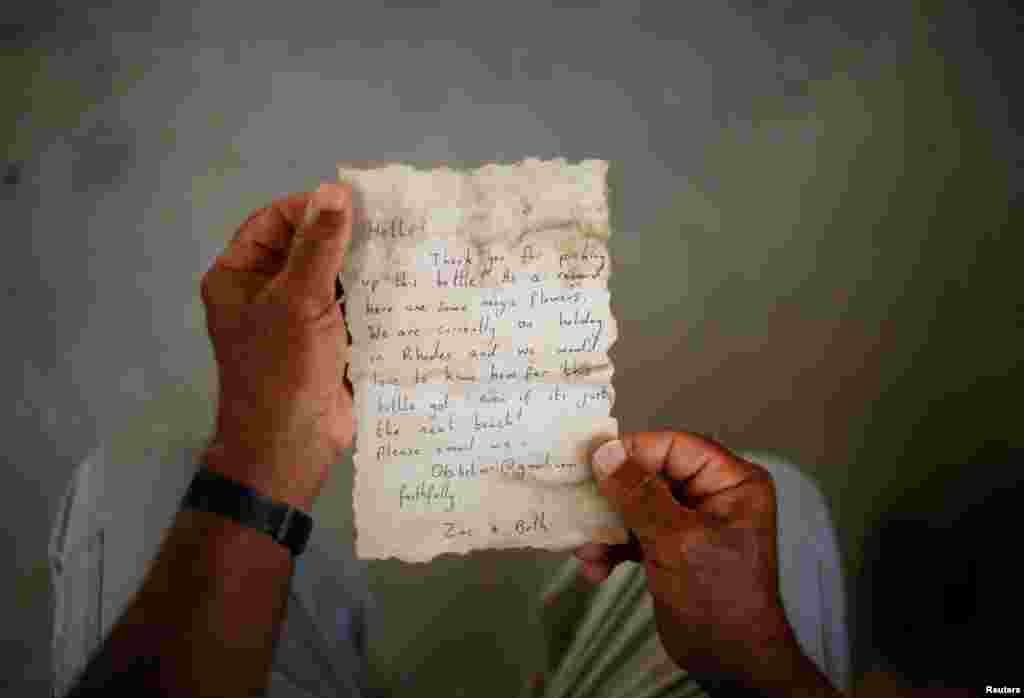 Hello!
Thank you for picking
up this bottle! As a reward
here are some magic flowers.
We are currently on holiday
in Rhodes and we would
love to know how far this
bottle got - even if its just
the next beach!
Please email us -
@gmail.com
faithfully
Zac & Beth
Reuters